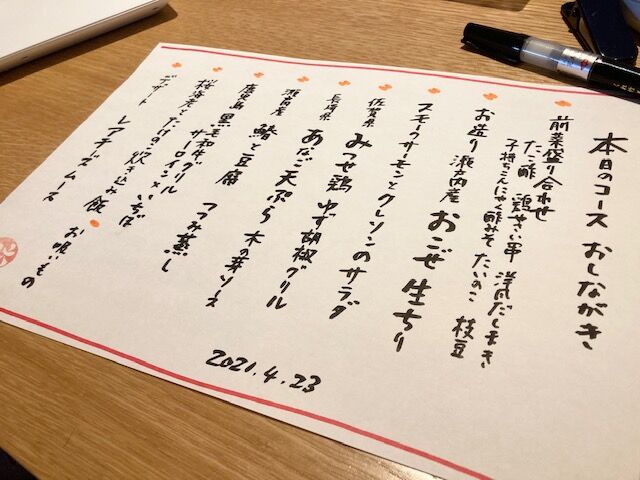 本日のコース おしながき
前菜盛り合わせ
たこ酢 鶏やさい串 洋風だしまき
子持ちこんにゃく酢みそ たいのこ 枝豆
お造り 瀬戸内産 おこぜ 生ちり
スモークサーモンとクレソンのサラダ
佐賀県 みつせ鶏 ゆず胡椒グリル
長崎県 あなご 天ぷら 木の芽ソース
瀬戸内産 鰆と豆腐 つつみ蒸し
鹿児島 黒毛和牛グリル
サーロイン×いちぼ
桜海老とたけのこ 炊き込み飯 お吸いもの
デザート レアチーズムース
2021.4.23